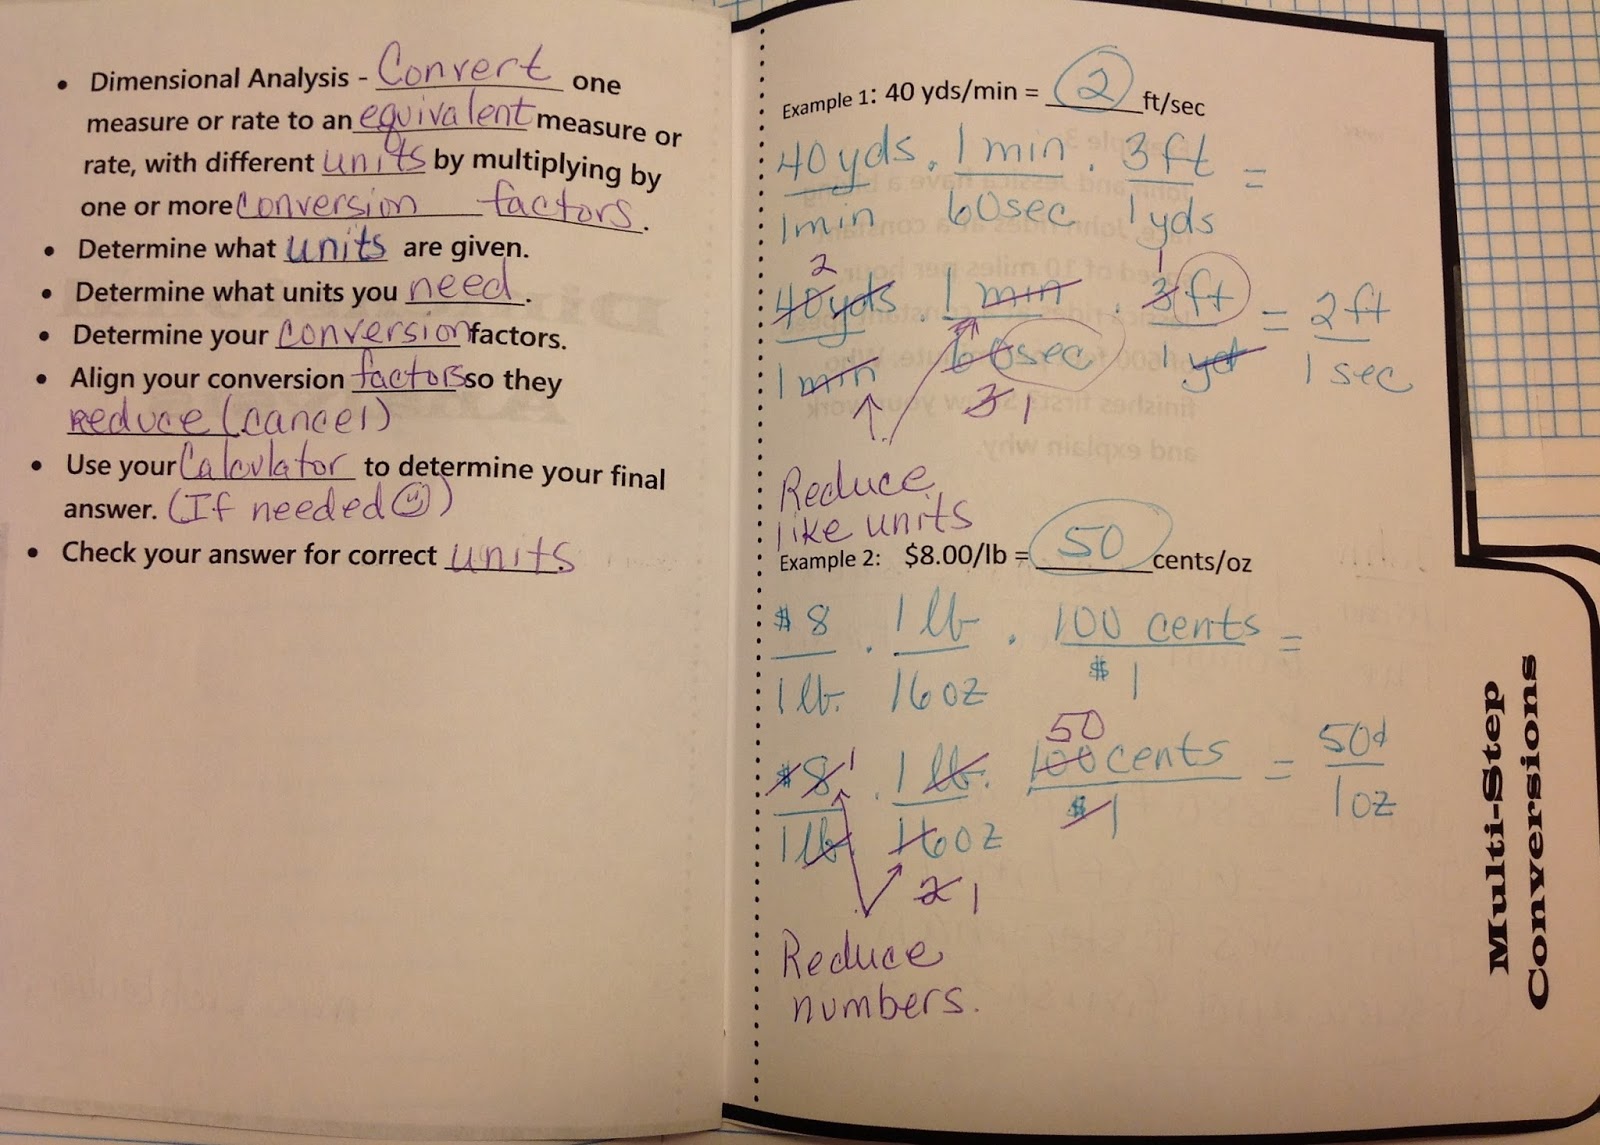 • Dimensional Analysis - Convert one
measure or rate to an equivalent measure or
rate, with different units by multiplying by
one or more conversion factors.
• Determine what units are given.
• Determine what units you need.
• Determine your conversion factors.
• Align your conversion factors so they
reduce (cancel)
• Use your Calculator to determine your final
answer. (If needed ☺)
• Check your answer for correct units.
Example 1: 40 yds/min = 2 ft/sec
40 yds . 1 min . 3 ft =
1 min 60 sec 1 yds
2 1
40 yds . 1 min . 3 ft = 2 ft
1 min 60 sec 1 yd 1 sec
3 1
Reduce
like units
Example 2: $8.00/lb = 50 cents/oz
$8 . 1 lb . 100 cents =
1 lb. 16 oz $1
50
$8 1 . 1 lb. 100 cents = 50¢
1 lb 16 oz $1 1 oz
2 1
Reduce
numbers.
Multi-Step
Conversions